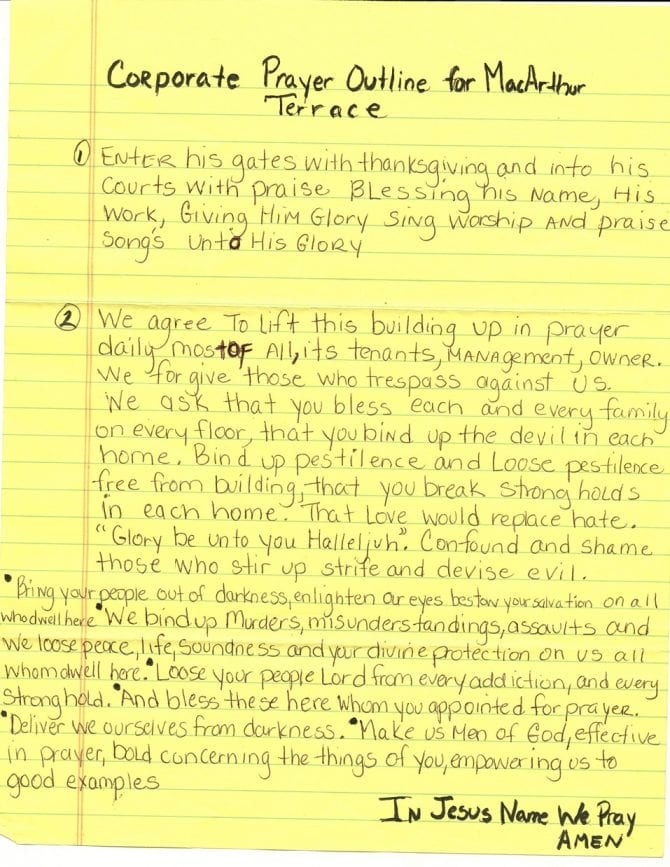 Corporate Prayer Outline for MacArthur
Terrace
① Enter his gates with thanksgiving and into his
Courts with praise Blessing his Name, His
Work, Giving Him Glory Sing worship And praise
song's unto His Glory
② We agree To lift this building up in prayer
daily most OF All, its tenants, MANAgement, Owner.
We forgive those who trespass against us.
We ask that you bless each and every family
on every floor, that you bind up the devil in each
home. Bind up pestilence and Loose pestilence
free from building, that you break strong holds
in each home. That Love would replace hate.
"Glory be unto you Halleljuh". Confound and shame
those who stir up strife and devise evil.
•Bring your people out of darkness, enlighten our eyes bestow your salvation on all
who dwell here •We bind up Murders, misunderstandings, assaults and
we loose peace, life, soundness and your divine protection on us all
whom dwell here. •Loose your people Lord from every addiction, and every
stronghold. •And bless these here whom you appointed for prayer.
•Deliver we ourselves from darkness. •Make us Men of God, effective
in prayer, bold concerning the things of you, empowering us to
good examples
In Jesus Name We Pray
AMEN